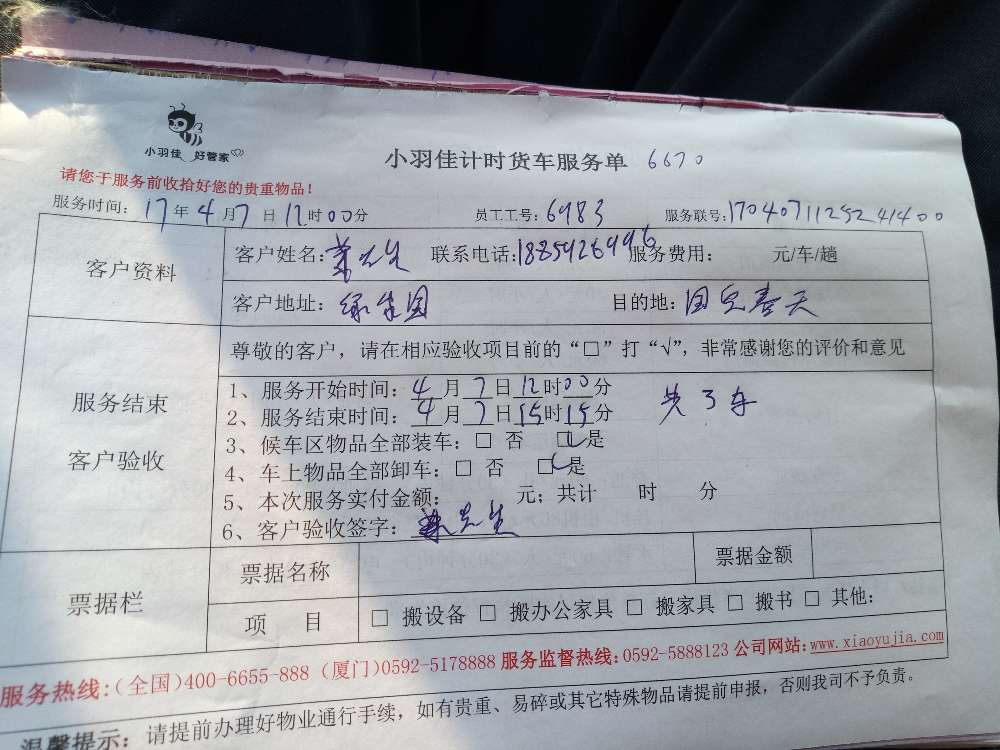 小羽佳 好管家
小羽佳计时货车服务单 6670
请您于服务前收拾好您的贵重物品！
服务时间：17年4月7日12时00分 员工工号：6983 服务联号：17040711252241400
客户资料
客户姓名： 先生 联系电话：18859269996 服务费用： 元/车/趟
客户地址：绿 园 目的地：国 春天
服务结束
客户验收
尊敬的客户，请在相应验收项目前的“□”打“√”，非常感谢您的评价和意见
1、服务开始时间：4月7日12时00分
2、服务结束时间：4月7日15时15分
共3车
3、候车区物品全部装车：□ 否 □ 是
4、车上物品全部卸车：□ 否 □ 是
5、本次服务实付金额： 元；共计 时 分
6、客户验收签字： 先生
票据栏
票据名称 票据金额
项 目 □ 搬设备 □ 搬办公家具 □ 搬家具 □ 搬书 □ 其他：
服务热线：（全国）400-6655-888（厦门）0592-5178888 服务监督热线：0592-5888123 公司网站：www.xiaoyujia.com
温馨提示：请提前办理好物业通行手续，如有贵重、易碎或其它特殊物品请提前申报，否则我司不予负责。